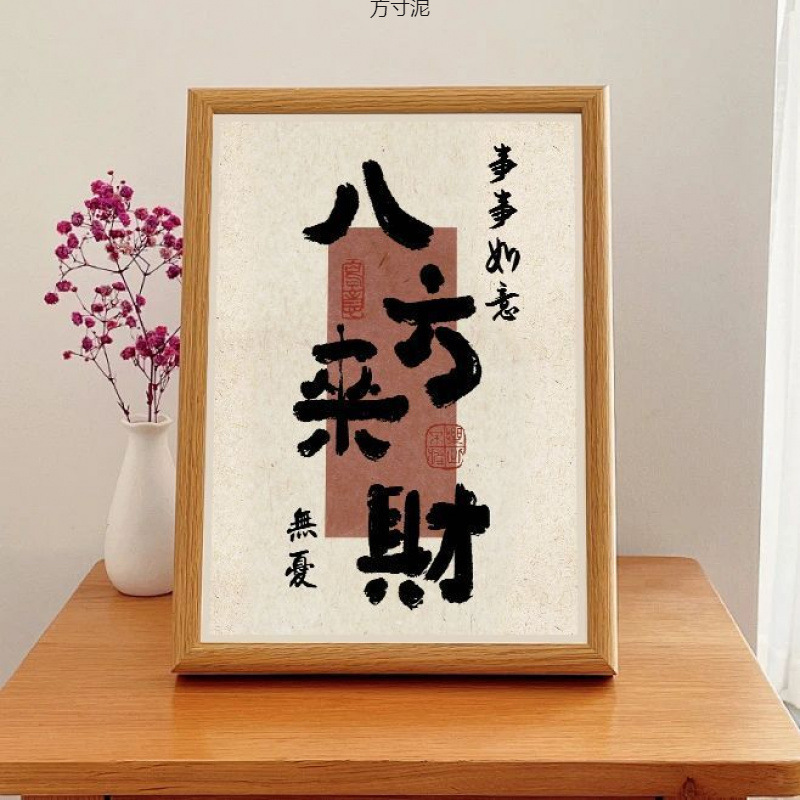 方寸泥
事事如意
八方来財
無憂